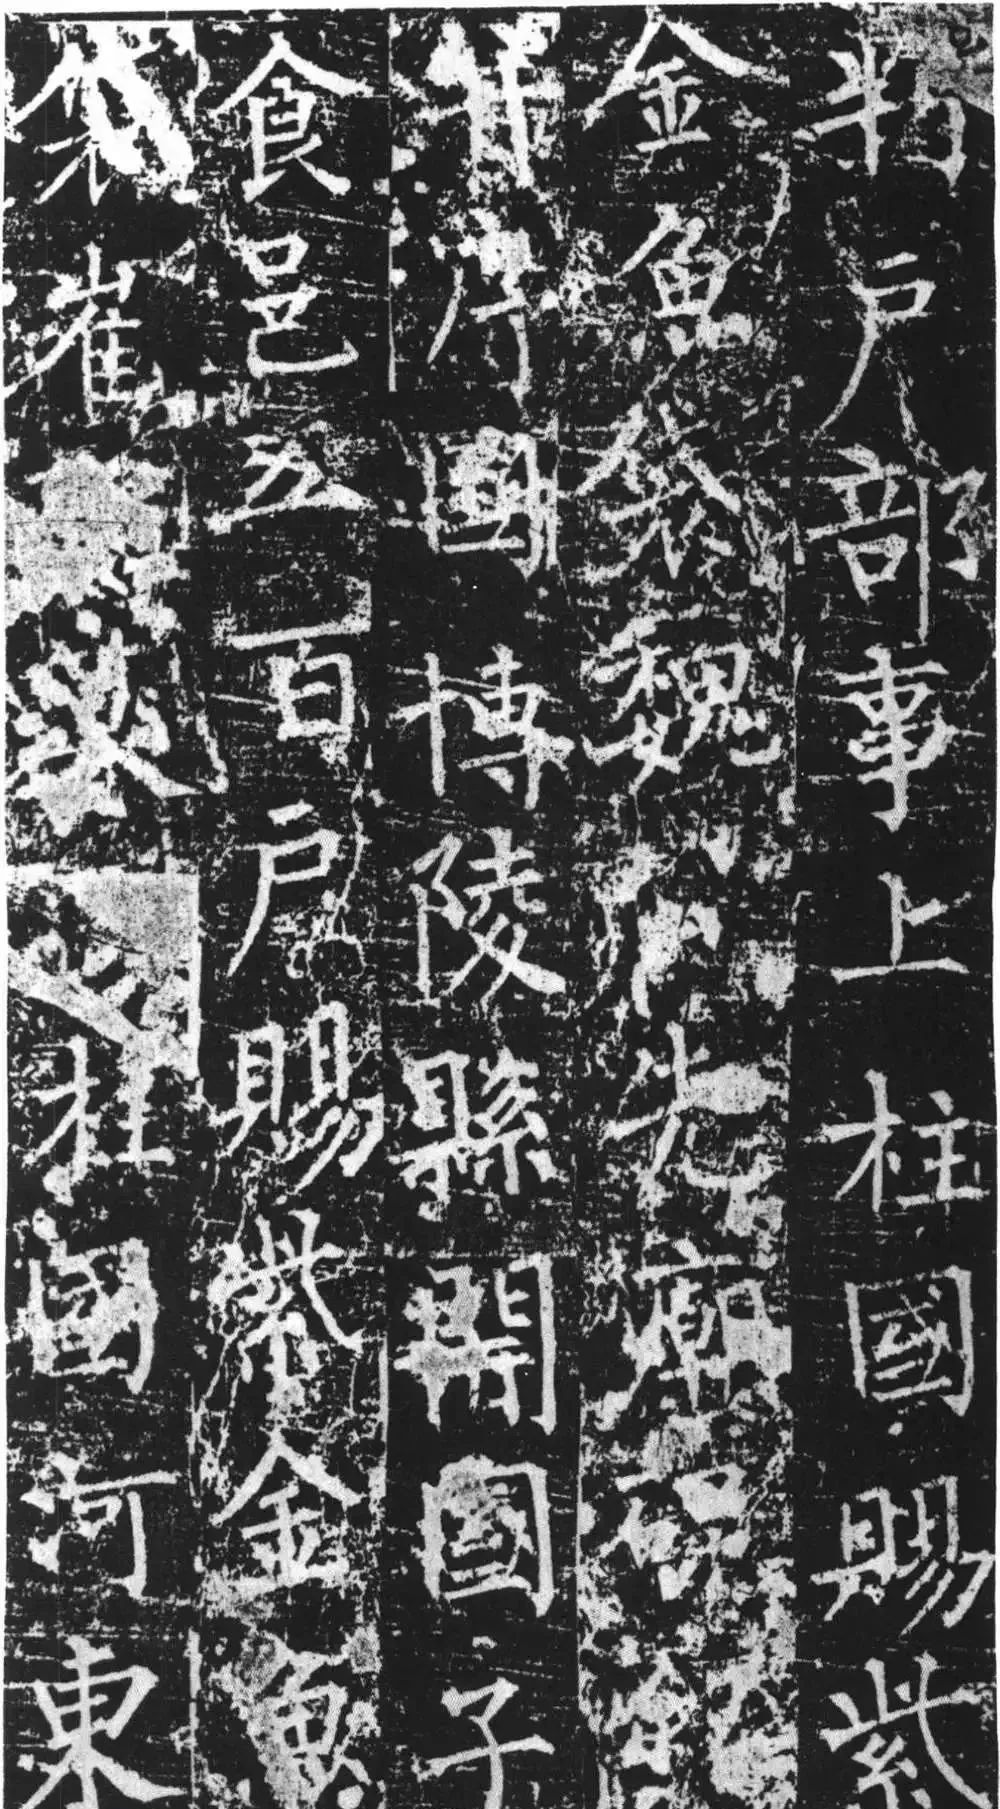 判戶部事上柱國賜紫
金魚袋魏公先廟碑
國博陵縣開國子
食邑五百戶賜紫金魚
袋崔柱國河東